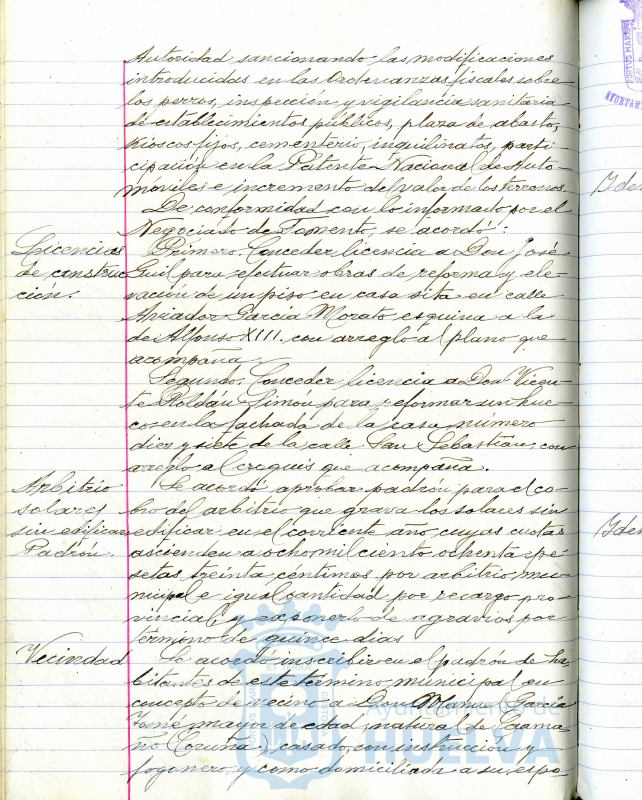 Autoridad sancionando las modificaciones
introducidas en las Ordenanzas fiscales sobre
los perros, inspección y vigilancia sanitaria
de establecimientos públicos, plaza de abasto,
kioscos fijos, cementerio, inquilinatos, parti-
cipación en la Patente Nacional de Auto-
móviles e incremento del valor de los terrenos.
De conformidad con lo informado por el
Negociado de Fomento, se acordó:
Licencias
de construc
ción.
Primero. Conceder licencia a Don José
Guil para efectuar obras de reforma y ele-
vación de un piso en casa sita en calle
Aviador García Morato esquina a la
de Alfonso XIII. con arreglo al plano que
acompaña.
Segundo. Conceder licencia a Don Vicen-
te Roldán Simón para reformar un hue-
co en la fachada de la casa número
diez y siete de la calle San Sebastián, con
arreglo al croquis que acompaña.
Arbitrio
solares
sin edificar
Padrón.
Se acordó aprobar padrón para el co-
bro del arbitrio que grava los solares sin
edificar en el corriente año, cuyas cuotas
ascienden a ocho mil ciento ochenta pe-
setas treinta céntimos por arbitrio mu-
nicipal e igual cantidad por recargo pro-
vincial, y exponerlo de agravios por
término de quince días
Vecindad
Se acordó inscribir en el padrón de ha-
bitantes de este término municipal en
concepto de vecino a Don Manuel García
Tomé, mayor de edad, natural de
(Coruña), casado, con instrucción y
fogonero, y como domiciliada a su espo-
Ayuntamiento de
HUELVA